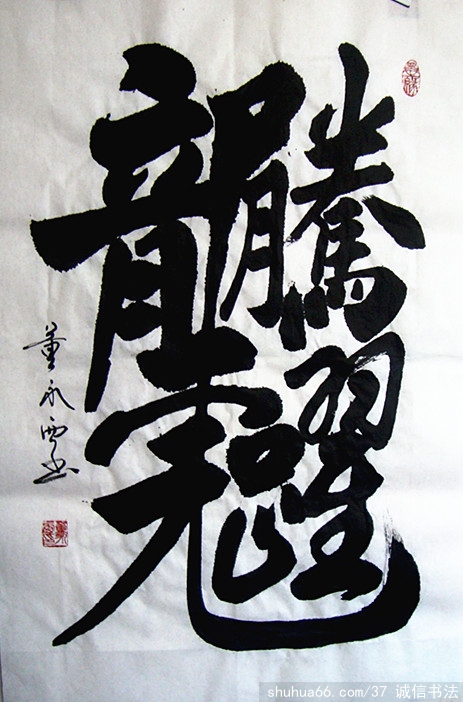 龍騰
虎躍
董永西书
shuhua66.com/37 诚信书法